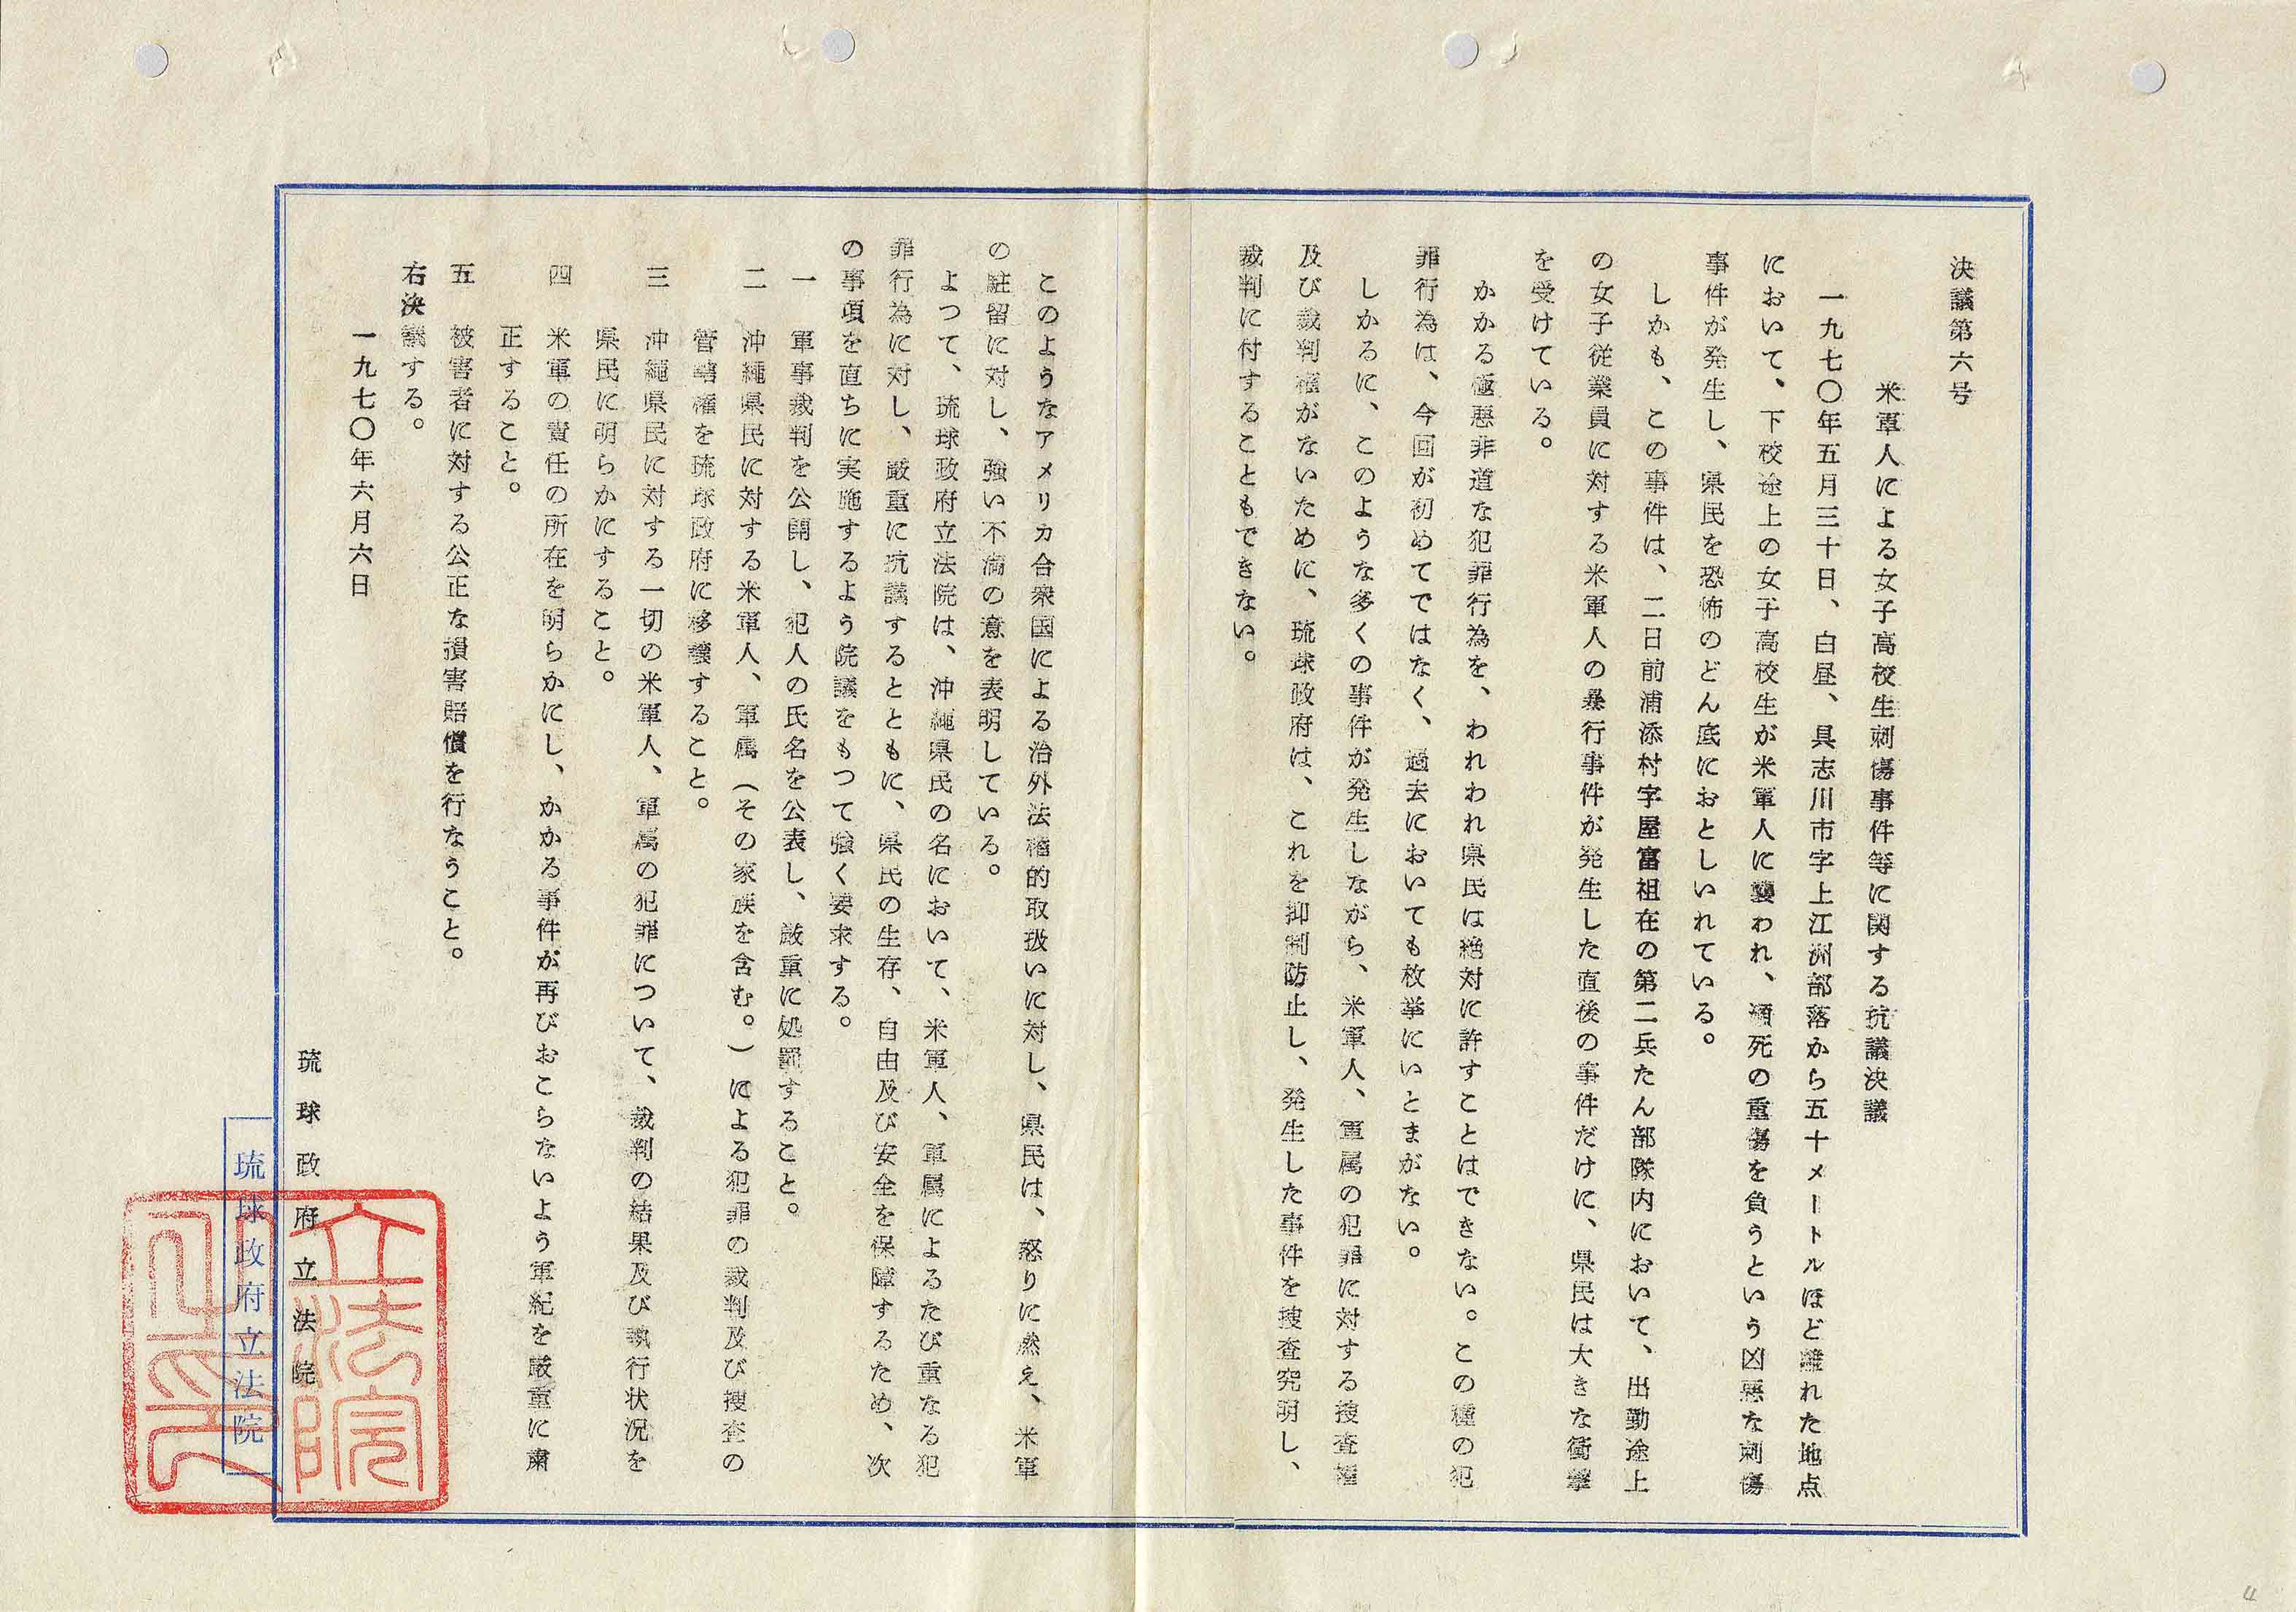 決議第六号
米軍人による女子高校生刺傷事件等に関する抗議決議
一九七〇年五月三十日、白昼、具志川市字上江洲部落から五十メートルほど離れた地点
において、下校途上の女子高校生が米軍人に襲われ、瀕死の重傷を負うという凶悪な刺傷
事件が発生し、県民を恐怖のどん底におとしいれている。
しかも、この事件は、二日前浦添村字屋富祖在の第二兵たん部隊内において、出勤途上
の女子従業員に対する米軍人の暴行事件が発生した直後の事件だけに、県民は大きな衝撃
を受けている。
かかる極悪非道な犯罪行為を、われわれ県民は絶対に許すことはできない。この種の犯
罪行為は、今回が初めてではなく、過去においても枚挙にいとまがない。
しかるに、このような多くの事件が発生しながら、米軍人、軍属の犯罪に対する捜査権
及び裁判権がないために、琉球政府は、これを抑制防止し、発生した事件を捜査究明し、
裁判に付することもできない。
このようなアメリカ合衆国による治外法権的取扱いに対し、県民は、怒りに燃え、米軍
の駐留に対し、強い不満の意を表明している。
よつて、琉球政府立法院は、沖縄県民の名において、米軍人、軍属によるたび重なる犯
罪行為に対し、厳重に抗議するとともに、県民の生存、自由及び安全を保障するため、次
の事項を直ちに実施するよう院議をもつて強く要求する。
一 軍事裁判を公開し、犯人の氏名を公表し、厳重に処罰すること。
二 沖縄県民に対する米軍人、軍属（その家族を含む。）による犯罪の裁判及び捜査の
管轄権を琉球政府に移譲すること。
三 沖縄県民に対する一切の米軍人、軍属の犯罪について、裁判の結果及び執行状況を
県民に明らかにすること。
四 米軍の責任の所在を明らかにし、かかる事件が再びおこらないよう軍紀を厳重に粛
正すること。
五 被害者に対する公正な損害賠償を行なうこと。
右決議する。
一九七〇年六月六日
琉球政府立法院
琉球政府立法院
立法院
之印
4